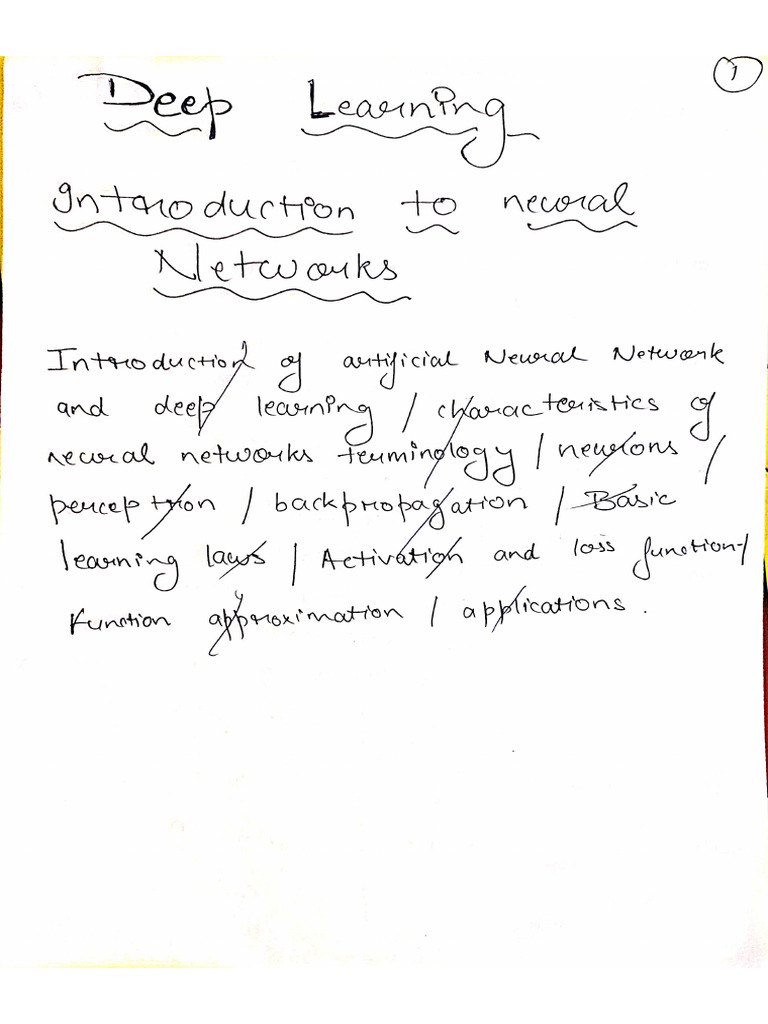 1
Deep Learning
Introduction to neural
Networks
Introduction of artificial Neural Network
and deep learning / characteristics of
neural networks terminology / neurons /
perceptron / backpropagation / Basic
learning laws / Activation and loss function /
Function approximation / applications.